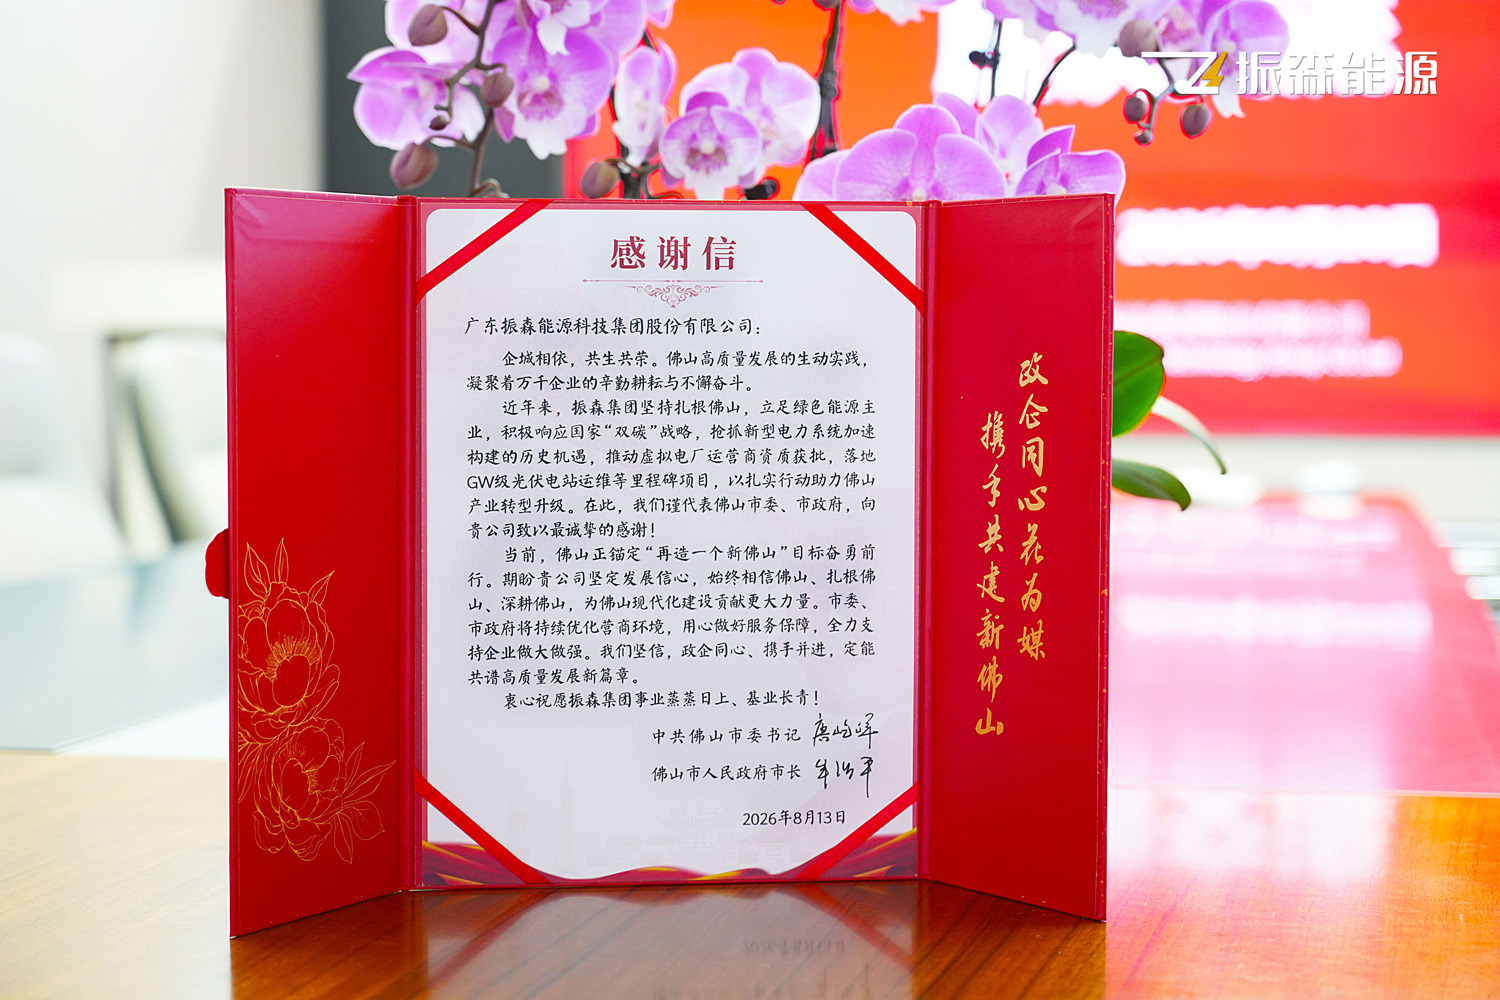 振森能源
感谢信
广东振森能源科技集团股份有限公司：
企城相依，共生共荣。佛山高质量发展的生动实践，
凝聚着万千企业的辛勤耕耘与不懈奋斗。
近年来，振森集团坚持扎根佛山，立足绿色能源主
业，积极响应国家“双碳”战略，抢抓新型电力系统加速
构建的历史机遇，推动虚拟电厂运营商资质获批，落地
GW级光伏电站运维等里程碑项目，以扎实行动助力佛山
产业转型升级。在此，我们谨代表佛山市委、市政府，向
贵公司致以最诚挚的感谢！
当前，佛山正锚定“再造一个新佛山”目标奋勇前
行。期盼贵公司坚定发展信心，始终相信佛山、扎根佛
山、深耕佛山，为佛山现代化建设贡献更大力量。市委、
市政府将持续优化营商环境，用心做好服务保障，全力支
持企业做大做强。我们坚信，政企同心、携手并进，定能
共谱高质量发展新篇章。
衷心祝愿振森集团事业蒸蒸日上、基业长青！
中共佛山市委书记
佛山市人民政府市长
2026年8月13日
政企同心花为媒
携手共建新佛山